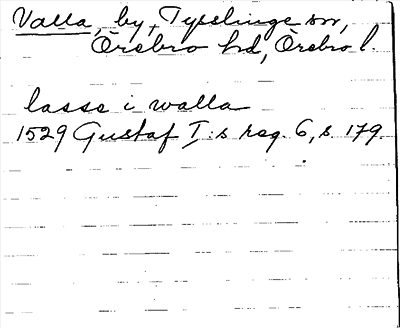 Valla, by, Tysslinge sn,
Örebro hd, Örebro l.
lasse i walla
1529 Gustaf I:s reg. 6, s. 179.